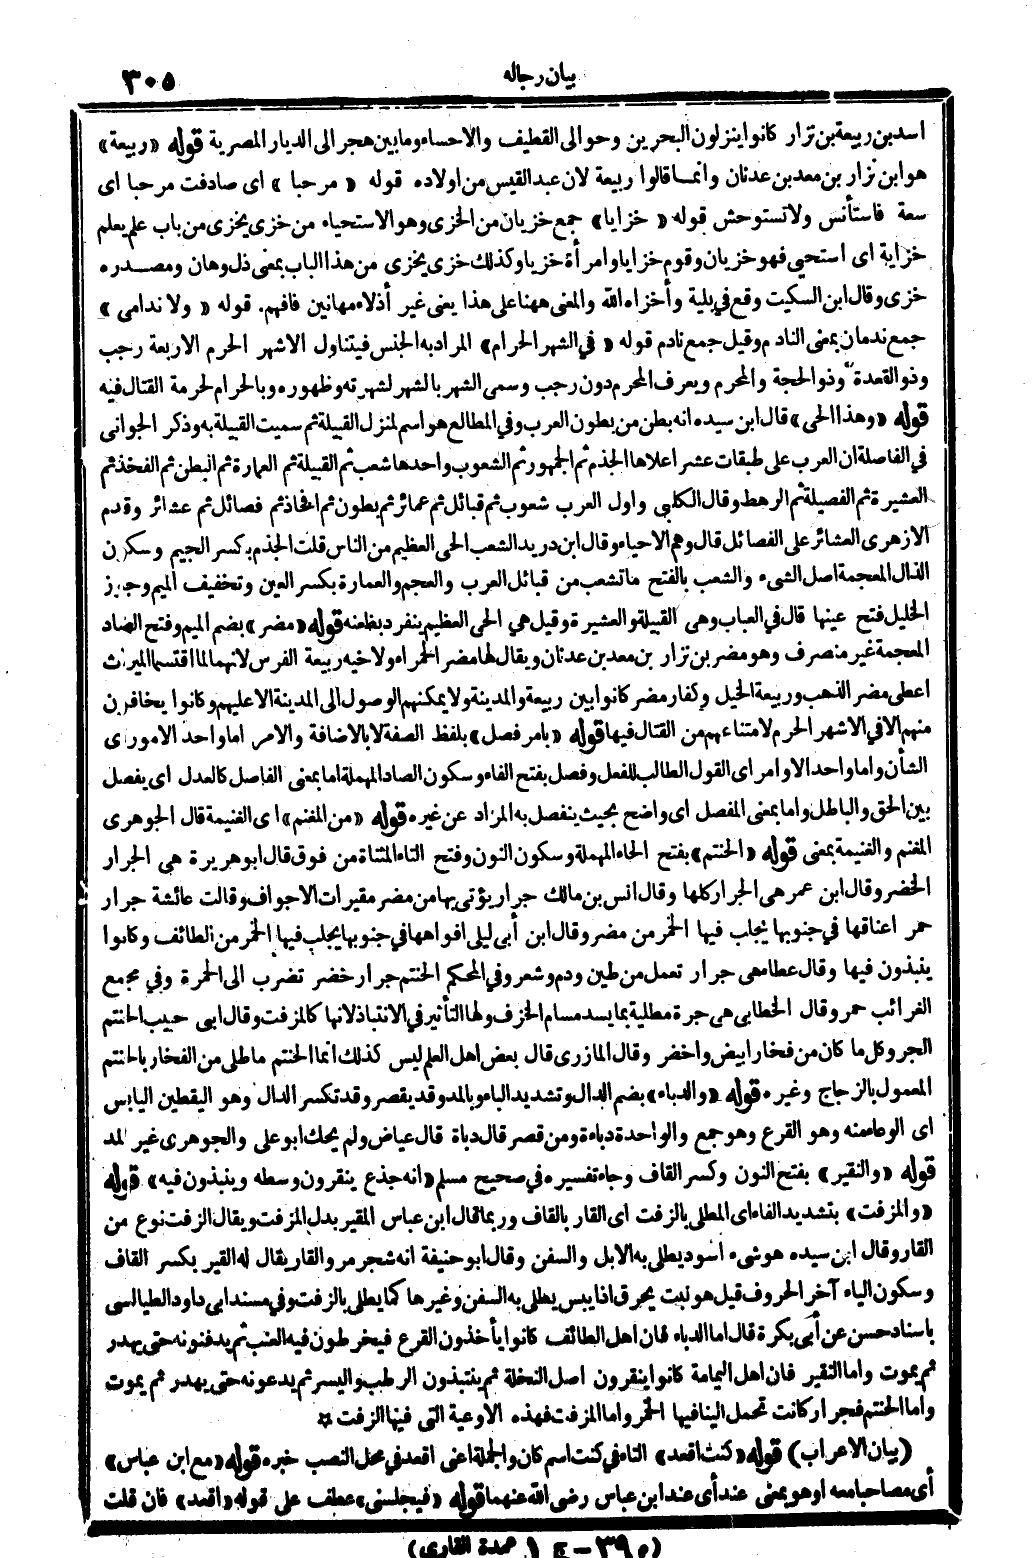 بيان رجاله ٣٠٥
اسد بن ربيعة بن نزار كانوا ينزلون البحرين وحوالى القطيف والاحساء وما بين هجر الى الديار المصرية قوله «ربيعة»
هو ابن نزار بن معد بن عدنان وانما قالوا ربيعة لان عبد القيس من اولاده قوله « مرحبا » اى صادفت مرحبا اى
سعة فاستأنس ولا تستوحش قوله « خزايا» جمع خزيان من الخزى وهو الاستحياء من خزى يخزى من باب علم يعلم
خزاية اى استحيى فهو خزيان وقوم خزايا وامرأة خزيا وكذلك خزى يخزى من هذا الباب بمعنى ذل وهان ومصدره
خزى وقال ابن السكيت وقع في بلية وأخزاه الله والمعنى ههنا على هذا يعنى غير أذلاء مهانين فافهم. قوله « ولا ندامى »
جمع ندمان بمعنى النادم وقيل جمع نادم قوله « في الشهر الحرام» المراد به الجنس فيتناول الاشهر الحرم الاربعة رجب
وذو القعدة وذو الحجة والمحرم ويعرف المحرم دون رجب وسمى الشهر بالشهر لشهرته وظهوره وبالحرام لحرمة القتال فيه
قوله «وهذا الحى» قال ابن سيده انه بطن من بطون العرب وفي المطالع هو اسم لمنزل القبيلة ثم سميت القبيلة به وذكر الجوانى
في الفاصلة ان العرب على طبقات عشر اعلاها الجذم ثم الجمهور ثم الشعوب واحدها شعب ثم القبيلة ثم العمارة ثم البطن ثم الفخذ ثم
العشيرة ثم الفصيلة ثم الرهط وقال الكلبى واول العرب شعوب ثم قبائل ثم عمائر ثم بطون ثم افخاذ ثم فصائل ثم عشائر وقدم
الازهرى العشائر على الفصائل قال وهم الاحياء وقال ابن دريد الشعب الحى العظيم من الناس قلت الجذم بكسر الجيم وسكون
الذال المعجمة اصل الشىء والشعب بالفتح ما تشعب من قبائل العرب والعجم والعمارة بكسر العين وتخفيف الميم وجوز
الخليل فتح عينها قال في العباب وهى القبيلة والعشيرة وقيل هي الحى العظيم ينفرد بظعنه قوله «مضر» بضم الميم وفتح الضاد
المعجمة غير منصرف وهو مضر بن نزار بن معد بن عدنان ويقال لها مضر الحمراء ولاخيه ربيعة الفرس لانهما لما اقتسما الميراث
اعطى مضر الذهب وربيعة الخيل وكفار مضر كانوا بين ربيعة والمدينة ولا يمكنهم الوصول الى المدينة الا عليهم وكانوا يخافون
منهم الا في الاشهر الحرم لامتناعهم من القتال فيها قوله «بامر فصل» بلفظ الصفة لا بالاضافة والامر اما واحد الامور اى
الشأن واما واحد الاوامر اى القول الطالب للفعل وفصل بفتح الفاء وسكون الصاد المهملة اما بمعنى الفاصل كالعدل اى يفصل
بين الحق والباطل واما بمعنى المفصل اى واضح بحيث ينفصل به المراد عن غيره قوله «من المغنم» اى الغنيمة قال الجوهرى
المغنم والغنيمة بمعنى قوله «الحنتم» بفتح الحاء المهملة وسكون النون وفتح التاء المثناة من فوق قال ابو هريرة هي الجرار
الخضر وقال ابن عمر هى الجرار كلها وقال انس بن مالك جرار يؤتى بها من مضر مقيرات الاجواف وقالت عائشة جرار
حمر اعناقها في جنوبها يجلب فيها الخمر من مضر وقال ابن أبى ليلى افواهها في جنوبها يجلب فيها الخمر من الطائف وكانوا
ينبذون فيها وقال عطاء هى جرار تعمل من طين ودم وشعر وفي المحكم الحنتم جرار خضر تضرب الى الحمرة وفي مجمع
الغرائب حمر وقال الخطابى هى جرة مطلية بما يسد مسام الخزف ولها التأثير في الانتباذ لانها كالمزفت وقال ابى حبيب الحنتم
الجر وكل ما كان من فخار ابيض واخضر وقال المازرى قال بعض اهل العلم ليس كذلك انما الحنتم ما طلى من الفخار بالحنتم
المعمول بالزجاج وغيره قوله «والدباء» بضم الدال وتشديد الباء وبالمد وقد يقصر وقد تكسر الدال وهو اليقطين اليابس
اى الوعاء منه وهو القرع وهو جمع والواحدة دباءة ومن قصر قال دباة قال عياض ولم يحك ابو على والجوهرى غير المد
قوله «والنقير» بفتح النون وكسر القاف وجاء تفسيره في صحيح مسلم «انه جذع ينقرون وسطه وينبذون فيه» قوله
«والمزفت» بتشديد الفاء اى المطلى بالزفت اى القار بالقاف وربما قال ابن عباس المقير بدل المزفت ويقال الزفت نوع من
القار وقال ابن سيده هو شىء اسود يطلى به الابل والسفن وقال ابو حنيفة انه شجر مر والقار يقال له القير بكسر القاف
وسكون الياء آخر الحروف قيل هو نبت يحرق اذا يبس يطلى به السفن وغيرها كما يطلى بالزفت وفي مسند ابى داود الطيالسى
باسناد حسن عن أبى بكرة قال اما الدباء فان اهل الطائف كانوا يأخذون القرع فيخرطون فيه العنب ثم يدفنونه حتى يهدر
ثم يموت واما النقير فان اهل اليمامة كانوا ينقرون اصل النخلة ثم ينتبذون الرطب واليسر ثم يدعونه حتى يهدر ثم يموت
واما الحنتم فجرار كانت تحمل الينا فيها الخمر واما المزفت فهذه الاوعية التى فيها الزفت ¤
(بيان الاعراب) قوله «كنت اقعد» التاء في كنت اسم كان والجملة اعنى اقعد في محل النصب خبره قوله «مع ابن عباس»
أى مصاحبا معه او هو بمعنى عند أى عند ابن عباس رضى الله عنهما قوله «فيجلسنى» عطف على قوله «اقعد» فان قلت
(م ٣٩ - ج ١ عمدة القارى)